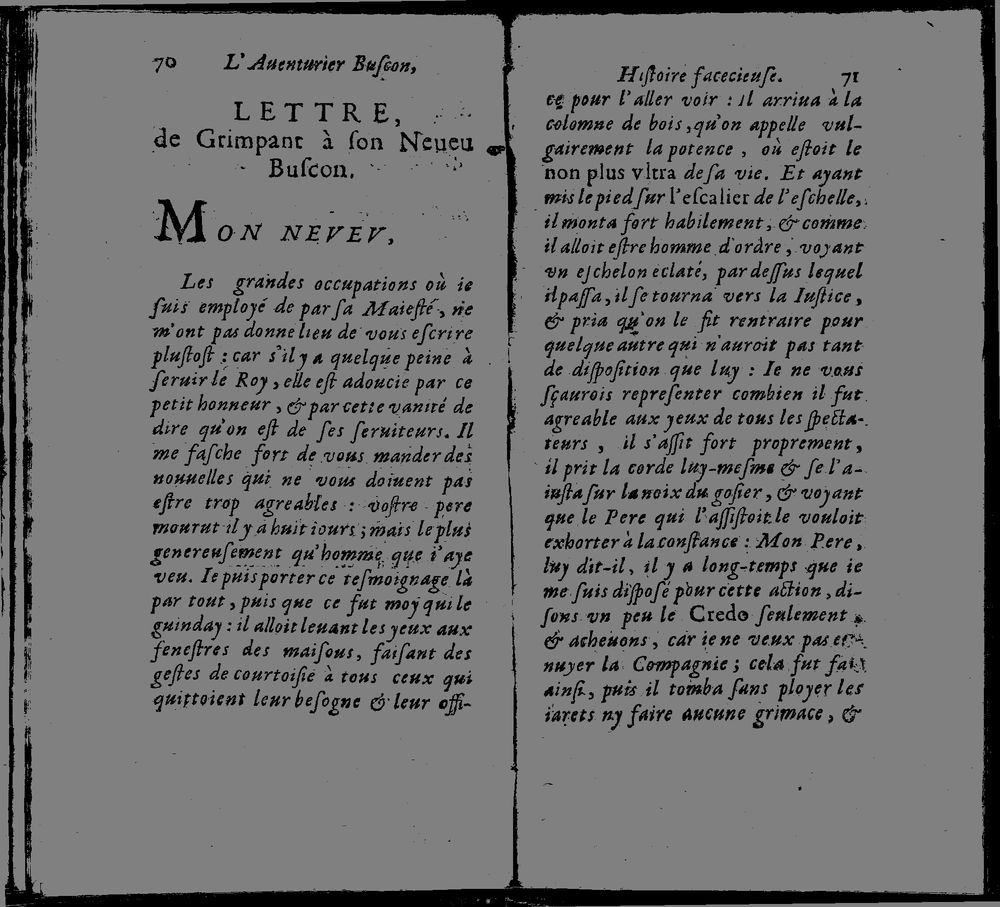 70 L'Auenturier Buſcon,
LETTRE,
de Grimpant à ſon Neueu
Buſcon.
MON NEVEV,
Les grandes occupations où ie
ſuis employé de par ſa Maieſté, ne
m'ont pas donne lieu de vous eſcrire
pluſtoſt : car s'il y a quelque peine à
ſeruir le Roy, elle eſt adoucie par ce
petit honneur, & par cette vanité de
dire qu'on eſt de ſes ſeruiteurs. Il
me faſche fort de vous mander des
nouuelles qui ne vous doiuent pas
eſtre trop agreables : voſtre pere
mourut il y a huit iours ; mais le plus
genereuſement qu'homme que i'aye
veu. Ie puis porter ce teſmoignage là
par tout, puis que ce fut moy qui le
guinday : il alloit leuant les yeux aux
feneſtres des maiſons, faiſant des
geſtes de courtoiſie à tous ceux qui
quittoient leur beſogne & leur offi-
Hiſtoire facecieuſe. 71
ce pour l'aller voir : il arriua à la
colomne de bois, qu'on appelle vul-
gairement la potence, où eſtoit le
non plus vltra de ſa vie. Et ayant
mis le pied ſur l'eſcalier de l'eſchelle,
il monta fort habilement, & comme
il alloit eſtre homme d'ordre, voyant
vn eſchelon eclaté, par deſſus lequel
il paſſa, il ſe tourna vers la Iuſtice,
& pria qu'on le fit rentraire pour
quelque autre qui n'auroit pas tant
de diſpoſition que luy : Ie ne vous
ſçaurois repreſenter combien il fut
agreable aux yeux de tous les ſpecta-
teurs, il s'aſſit fort proprement,
il prit la corde luy-meſme & ſe l'a-
iuſta ſur la noix du goſier, & voyant
que le Pere qui l'aſſiſtoit le vouloit
exhorter à la conſtance : Mon Pere,
luy dit-il, il y a long-temps que ie
me ſuis diſpoſé pour cette action, di-
ſons vn peu le Credo ſeulement
& acheuons, car ie ne veux pas en-
nuyer la Compagnie ; cela fut fait
ainſi, puis il tomba ſans ployer les
iarets ny faire aucune grimace, &